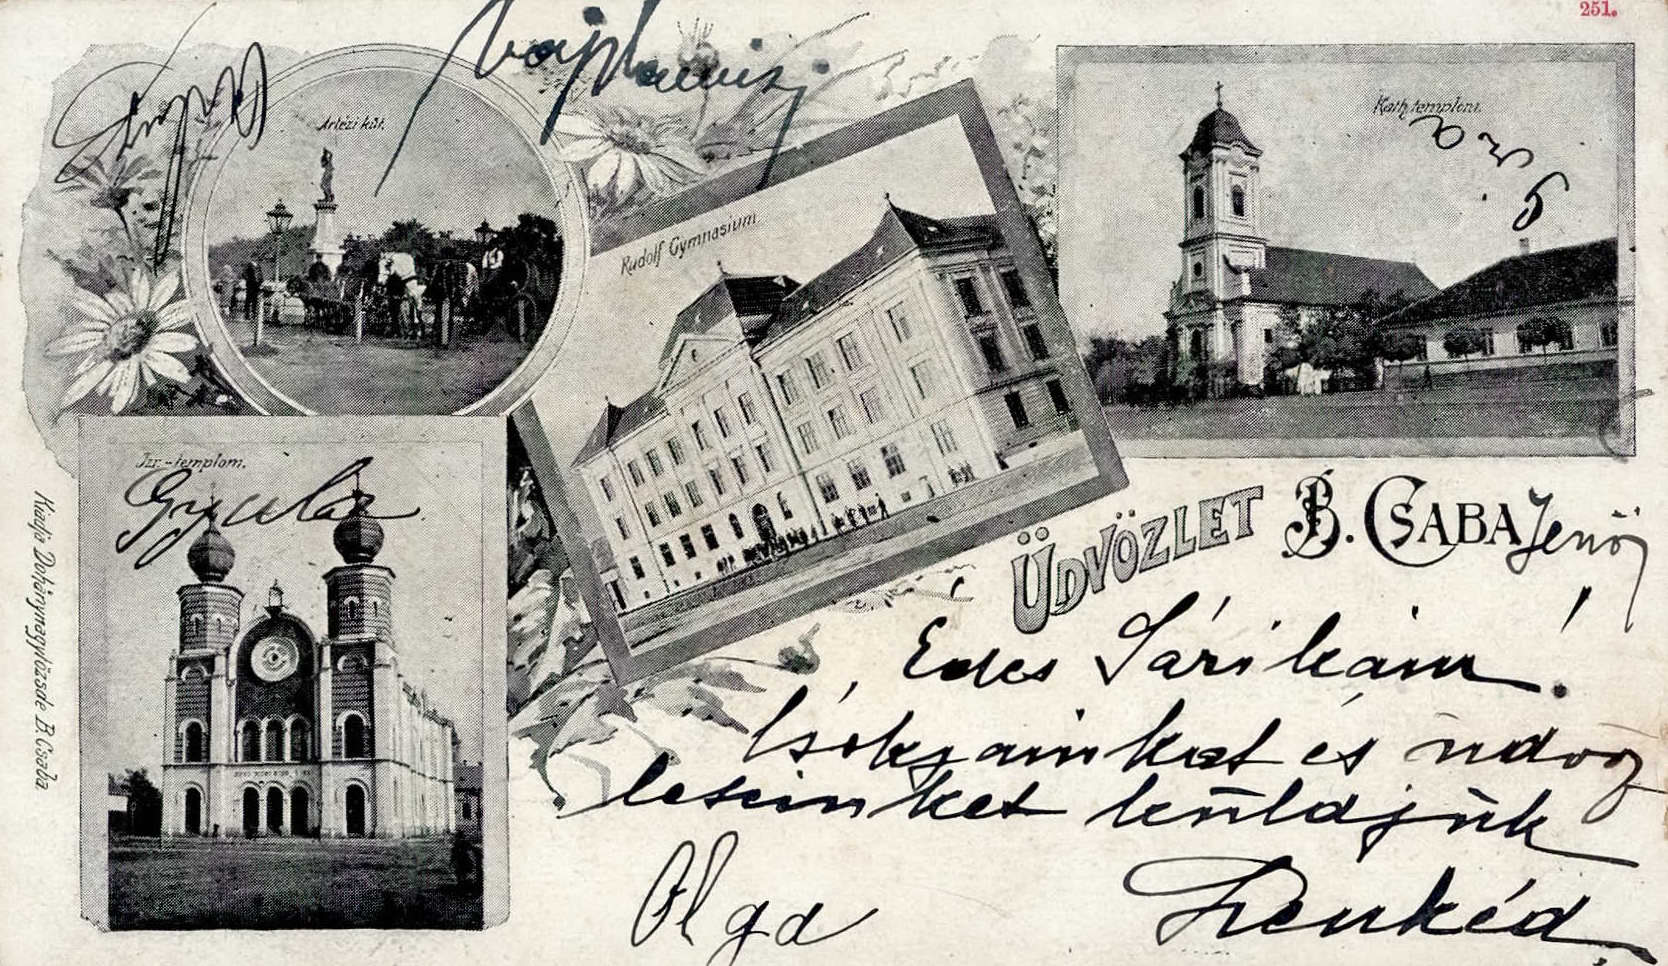 251.
Artézi kút.
Rudolf Gymnasium.
Kath. templom.
Giza
Izr.-templom.
Gyula
ÜDVÖZLET B. CSABA
Jenő
Edes Sárikám!
Csókjainkat és üdvöz
leteinket küldjük
Olga
Lenkéd
Kiadja Dohánynagytőzsde B Csaba